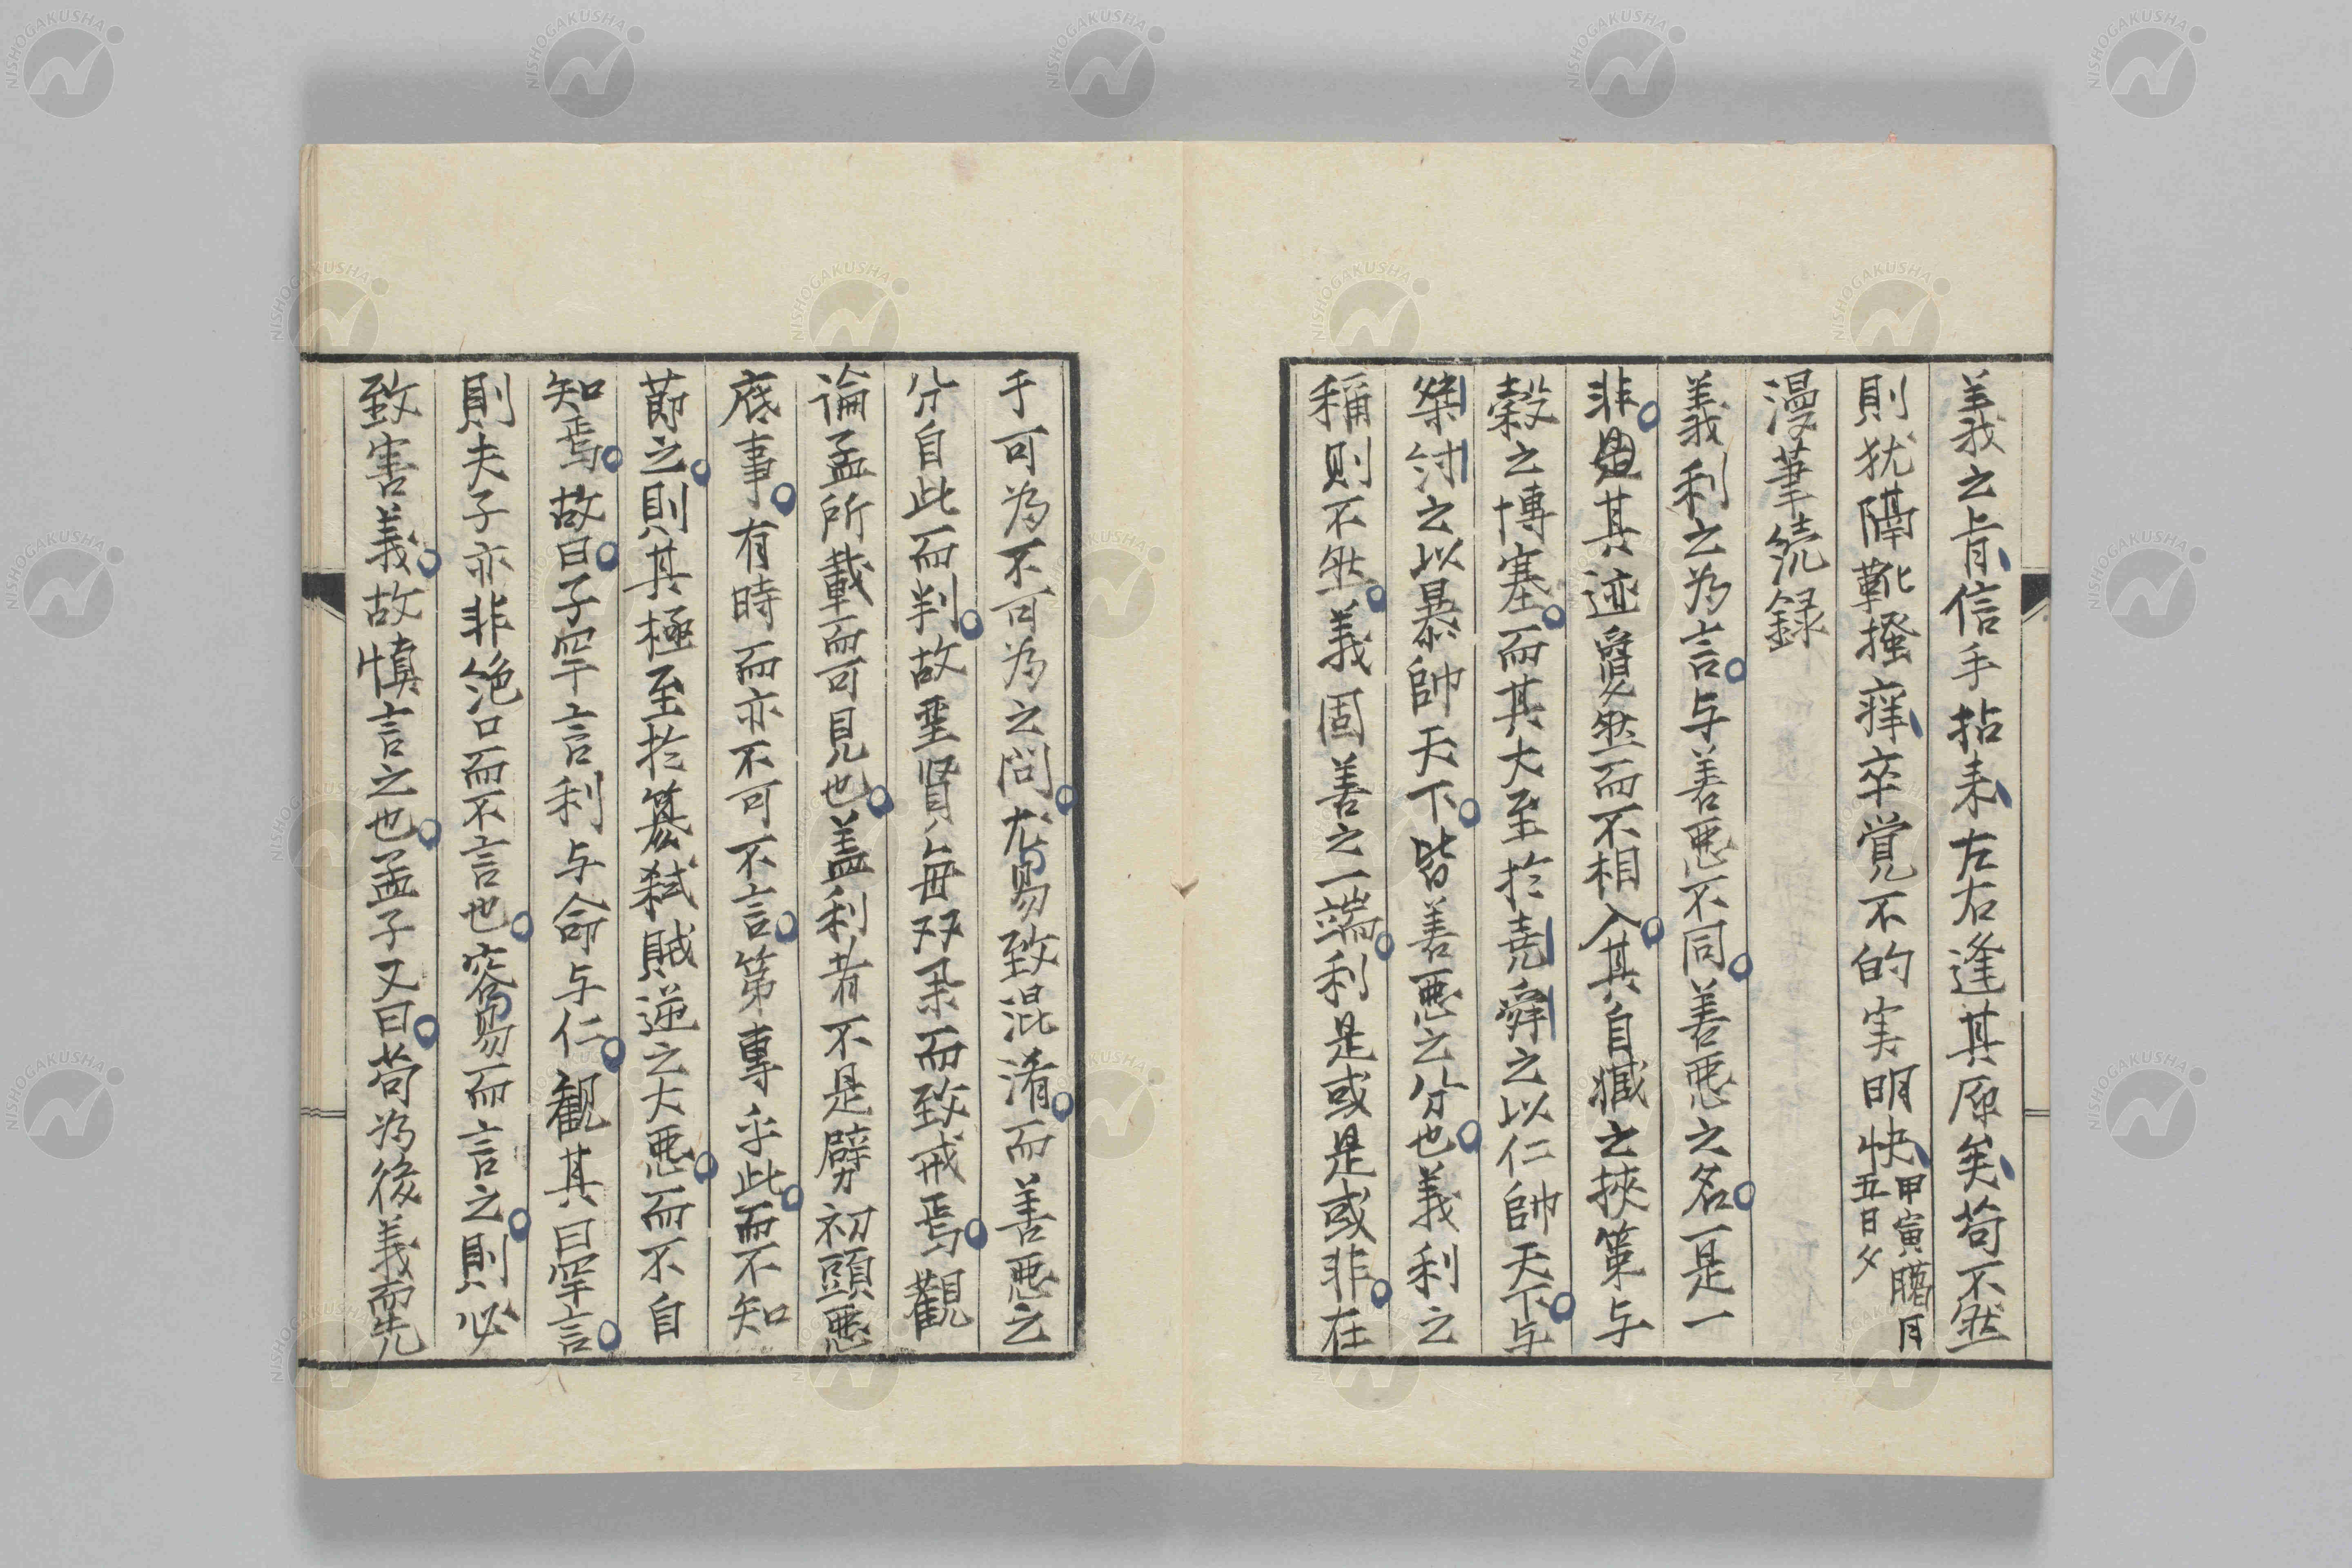 義之肯信手拈来左右逢其原矣苟不然
則犹隔靴掻痒卒覚不的実明快甲寅臈月
五日夕
漫筆続録
義利之為言与善悪不同善悪之名一是一
非其迹霄壌而不相入其自臧之挾策与
穀之博塞而其大至於堯舜之以仁帥天下与
桀紂之以暴帥天下皆善悪之分也義利之
稱則不然義固善之一端利是或是或非在
乎可為不可為之間尤易致混淆而善悪之
分自此而判故聖賢每双举而致戒焉觀
論孟所載而可見也盖利者不是劈初頭悪
底事有時而亦不可不言第專乎此而不知
節之則其極至於簒弑賊逆之大悪而不自
知焉故曰子罕言利与命与仁観其曰罕言
則夫子亦非絶口而不言也容易而言之則必
致害義故慎言之也孟子又曰苟為後義而先
NISHOGAKUSHA